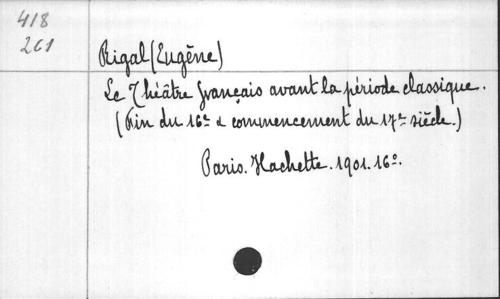 418
261
Rigal (Eugène)
Le Théâtre français avant la période classique.
(Fin du 16e & commencement du 17e siècle.)
Paris. Hachette. 1901. 16o.